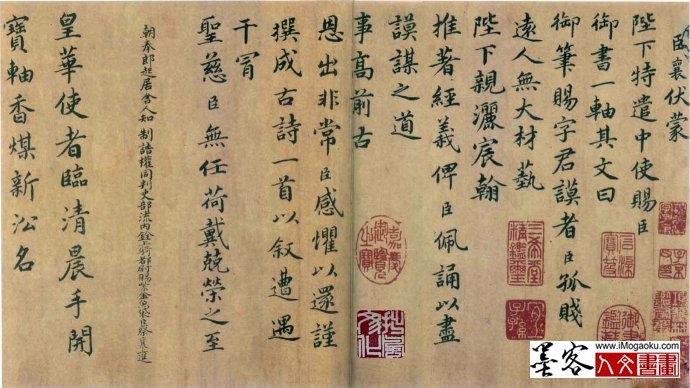 臣襄伏蒙
陛下特遣中使賜臣
御書一軸其文曰
御筆賜字君謨者臣孤賤
遠人無大材藝
陛下親灑宸翰
推著經義俾臣佩誦以盡
謨謀之道
事高前古
恩出非常臣感懼以還謹
撰成古詩一首以叙遭遇
干冒
聖慈臣無任荷戴兢榮之至
朝奉郎起居舍人知制誥權同判吏部流內銓上騎都尉賜紫金魚袋臣蔡襄進
皇華使者臨清晨手開
寶軸香煤新沿名
嘉慶御覽之寶
三希堂精鑑璽
宜子孫
石渠寶笈
墨客
人文書畫
www.iMogaoku.com